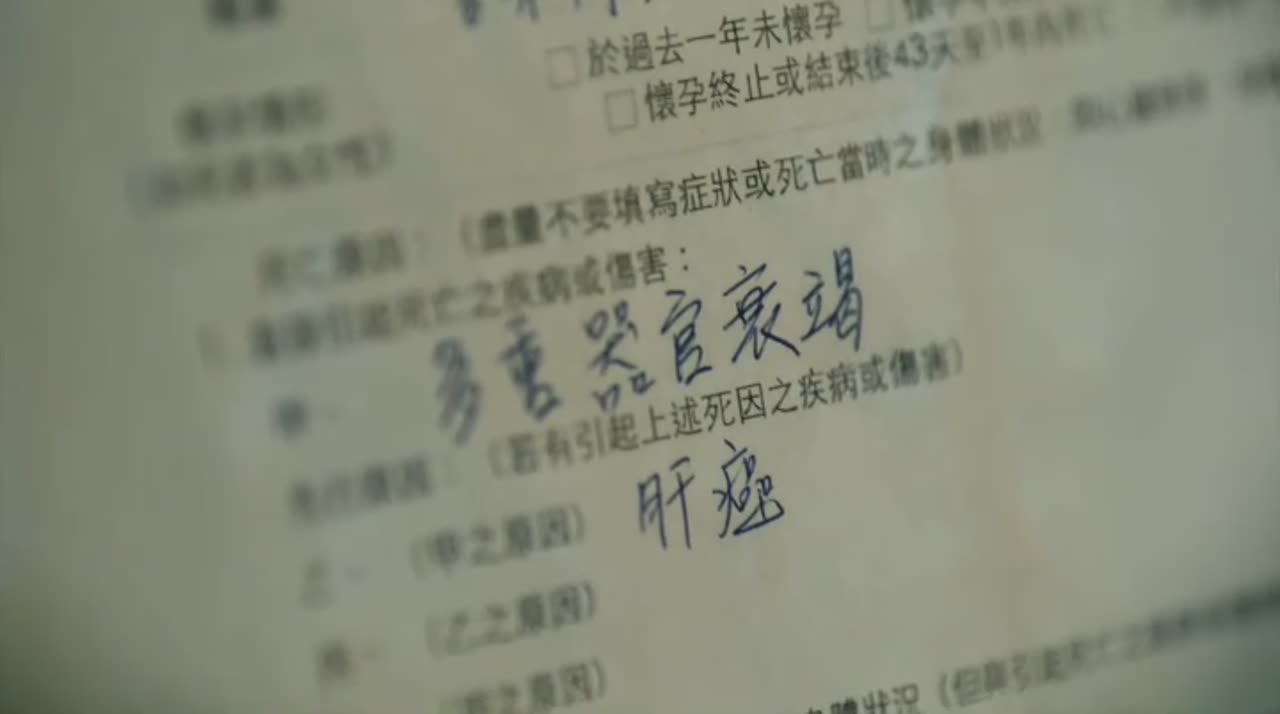 □於過去一年未懷孕 □懷孕
□懷孕終止或結束後43天至1年內死亡
死亡原因：（盡量不要填寫症狀或死亡當時之身體狀況
1. 直接引起死亡之疾病或傷害：
甲、 多重器官衰竭
先行原因：（若有引起上述死因之疾病或傷害）
乙、（甲之原因） 肝癌
丙、（乙之原因）
（丙之原因）
身體狀況（但與引起死亡之